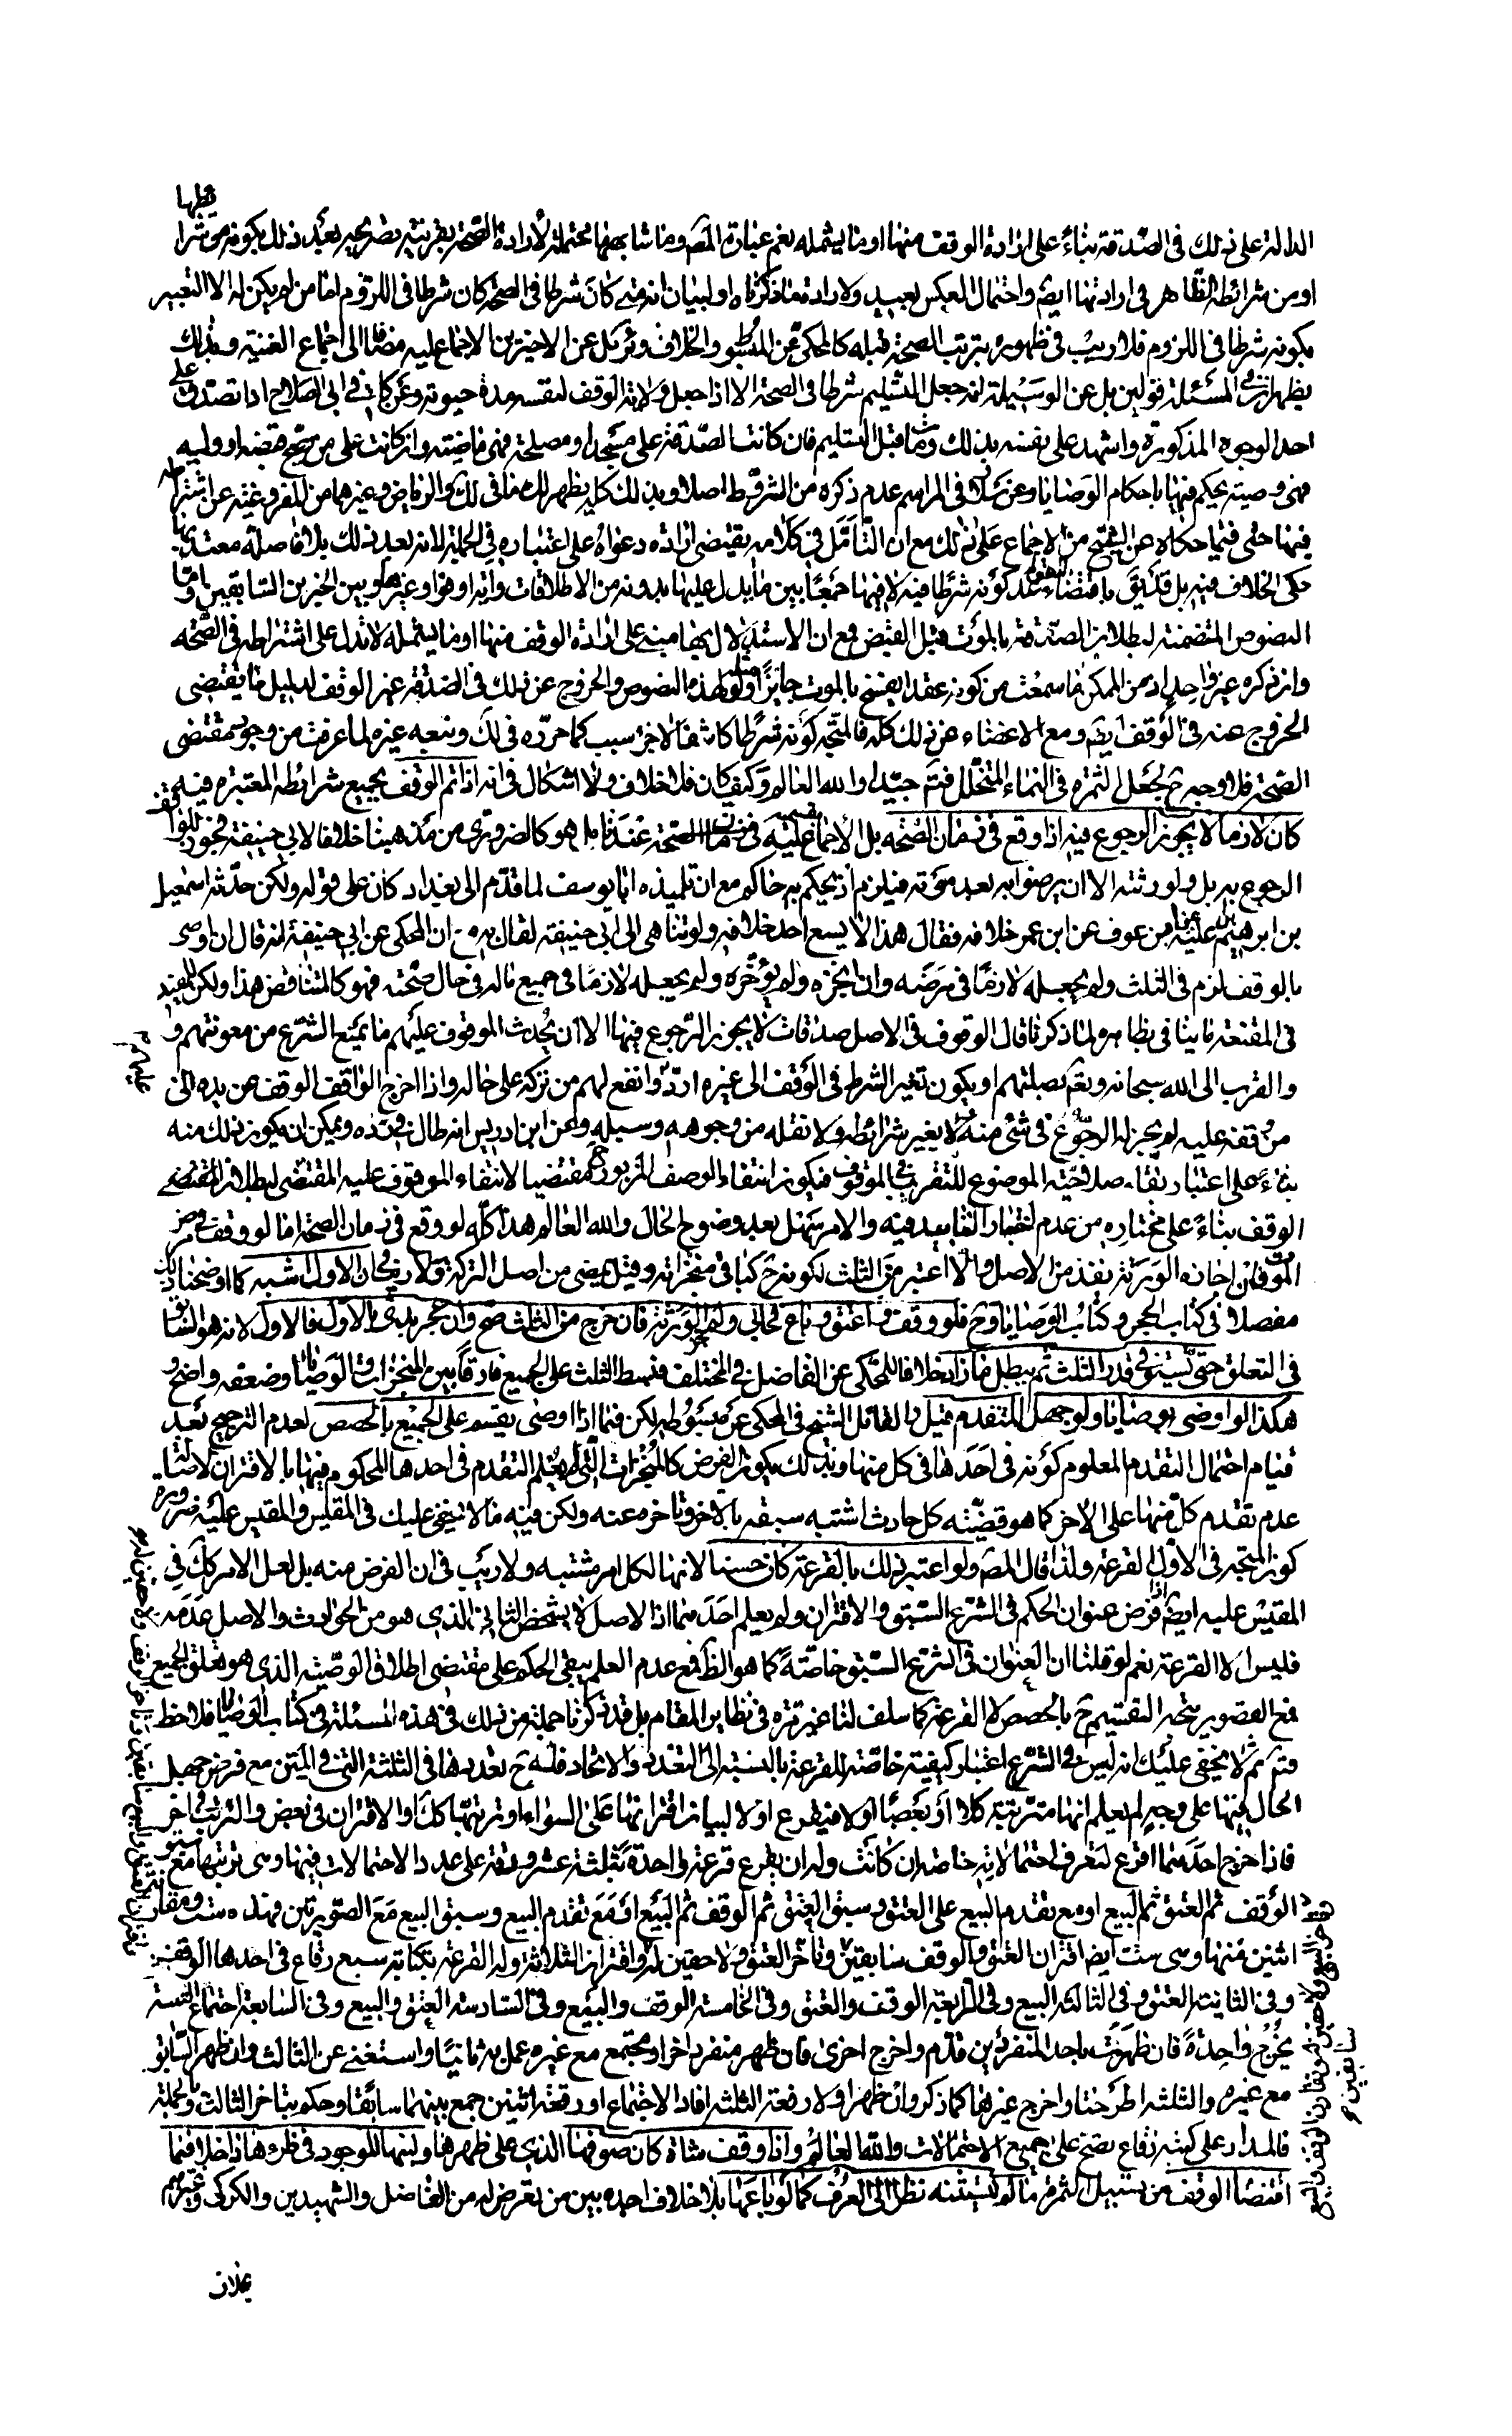 يظهر لها
الدالة على ذلك في الصدقة بناء على ارادة الوقف منها او ما يشمله نعم عبارة المصّ وما شابهها محتملة لارادة الصحة بقرينة تصريحه بعد ذلك بكونه
او من شرائطه الظاهر في ارادتها ايضً واحتمال العكس بعيد ولارادة ما ذكرناه او لبيان انه متى كان شرطا في الصحة كان شرطا في اللزوم اما من لم يكن له الا التعبير
بكونه شرطا في اللزوم فلا ريب في ظهوره بترتب الصحة قبله كالمحكي عن المبسوط والخلاف عن الاخيرين الاجماع عليه مضافا الى اجماع الغنية وبذلك
يظهر ان في المسئلة قولين بل عن الوسيلة انه جعل التسليم شرطا في الصحة الا اذا جعل ولاية الوقف لنفسه مدة حيوته وعن كافي ابي الصلاح اذا تصدق على
احد الوجوه المذكورة واشهد على نفسه بذلك ومات قبل التسليم فان كانت الصدقة على مسجد او مصلحة فهي ماضية وان كانت على من يصح قبضه او وليه
فهي وصية يحكم فيها باحكام الوصايا وعن في المراسم عدم ذكره من الشروط اصلا وبذلك كله يظهر لك ما في لك والرياض وغيرهما من
فيها حتى فيما حكاه عن التنقيح من الاجماع على ذلك مع ان التأمل في كلامه يقتضي ارادة دعواه على اعتباره في الجملة لانه بعد ذلك بلا فاصلة معتد بها
حكى الخلاف فيه بل قد يق باقتضاء عدم كونه شرطا فيه لا فيها جمعا بين ما يدل عليها بدونه من الاطلاقات واية اوفوا وغيرها وبين الخبرين السابقين واما
النصوص المتضمنة لبطلان الصدقة بالموت قبل القبض فمع ان الاستدلال بها مبني على ارادة الوقف منها او ما يشمله لا تدل على اشتراطه في الصحة
وان ذكره غير واحد اذ من الممكن ما سمعت من كونه عقدا يفسخ بالموت جايزا ولو لهذه النصوص والخروج عن ذلك في الصدقة غير الوقف لدليل ما يقتضي
الخروج عنه في الوقف ايضً ومع الاغضاء عن ذلك كله فالمتجه كونه شرطا كاشفا لا جزء سبب كما حرره في لك وتبعه غيره لما عرفت من وجوب مقتضى
الصحة فلا وجه ح لجعل الثمرة في النماء المتخلل فتم جيدا والله العالم وكيف كان فلا خلاف ولا اشكال في انه اذا تم الوقف بجميع شرائطه المعتبرة فيه
كان لازما لا يجوز الرجوع فيه اذا وقع في زمان الصحة بل الاجماع بقسميه عليه عندنا بل هو كالضروري من مذهبنا خلافا لابي حنيفة فجوز للواقف
الرجوع به بل ولورثته الا ان يرضوا به بعد موته فيلزم او يحكم به حاكم مع ان تلميذه ابا يوسف لما قدم الى بغداد كان على قوله ولكن حدثه اسمعيل
بن ابرهيم بن علية عن ابن عوف عن ابن عمر خلافه فقال هذا لا يسع احد خلافه ولو تناهى الى ابي حنيفة لقال به مع ان المحكى عن ابي حنيفة انه قال ان اوصى
بالوقف لزم في الثلث ولم يجعله لازما في مرضه وان نجزه ولم يؤخره ولم يجعله لازما في جميع ماله في حال صحته فهو كالمتناقض هذا ولكن للمفيد
في المقنعة ما ينافي بظاهره لما ذكرنا قال الوقوف في الاصل صدقات لا يجوز الرجوع فيها الا ان يحدث الموقوف عليهم ما يمنع الشرع من معونتهم و
والقرب الى الله سبحانه وتعً بصلتهم او يكون تغير الشرط في الوقف الى غيره ارد وانفع لهم من تركه على حاله واذا اخرج الواقف الوقف عن يده الى
من وقفه عليه لم يجز له الرجوع في شئ منه ولا تغيير شرائطه ولا نقله من وجوهه وسبله وعن ابن ادريس انه طال في رده ويمكن ان يكون ذلك منه
بناء على اعتبار بقاء صلاحية الموضوع للتقرب في الموقوف فيكون انتفاء الوصف المزبور مقتضيا لانتفاء الموقوف عليه المقتضي لبطلان
الوقف بناء على مختاره من عدم اعتبار التأبيد فيه والامر سهل بعد وضوح الحال والله العالم هذا كله لو وقع في زمان الصحة اما لو وقف في مرض
الموت فان اجازه الورثة نفذ من الاصل والا اعتبر من الثلث لكونه ح كباقي منجزاته وقيل يمضي من اصل التركة ولا ريب في ان الاول اشبه كما اوضحنا ذلك
مفصلا في كتاب الحجر وكتاب الوصايا وح فلو وقف واعتق وباع فحابى ولم يجز الورثة فان خرج من الثلث صح وان عجز بدئ بالاول فالاول لانه هو السابق
في التعلق حتى يستوفي قدر الثلث ثم يبطل ما زاد خلافا للمحكى عن الفاضل في المختلف فقسط الثلث على الجميع فارقا بين المنجزات والوصايا وضعفه واضح و
هكذا لو اوصى بوصايا ولو جهل المتقدم قيل والقائل الشيخ في المحكى عن مبسوطه لكن فيما اذا اوصى يقسم على الجميع بالحصص لعدم الترجيح بعد
قيام احتمال التقدم المعلوم كونه في احدها في كل منها وبذلك يكون الفرض كالمنجزات التي لم يعلم التقدم في احدها المحكوم فيها بالاقتران لاصالة
عدم تقدم كل منها على الاخر كما هو قضية كل حادث اشتبه سبقه بالاخر وتاخره عنه ولكن فيه ما لا يخفى عليك في المقيس والمقيس عليه ضرورة
كون المتجه في الاول القرعة ولذا قال المصّ ولو اعتبر ذلك بالقرعة كان حسنا لانها لكل امر مشتبه ولا ريب في ان الفرض منه بل لعل الامر كك في
المقيس عليه ايضً اذا فرض عنوان الحكم في الشرع السبق والاقتران ولم يعلم احدهما اذ الاصل لا يشخص الثاني الذي هو من الحوادث والاصل عدمه
فليس الا القرعة نعم لو قلنا ان العنوان في الشرع السبق خاصة كما هو الظ فمع عدم العلم يبقى الحكم على مقتضى اطلاق الوصية الذي هو تعلق الجميع
فمع القصور يتجه التقسيم ح بالحصص لا القرعة كما سلف لنا غير مرة في نظاير المقام بل قد ذكرنا جملة من ذلك في هذه المسئلة في كتاب الوصايا فلاحظ
وتم ثم لا يخفى عليك انه ليس في الشرع اعتبار كيفية خاصة للقرعة بالنسبة الى التعدد والاتحاد فله ح تعديدها في الثلثة التي في المتن مع فرض جهل
الحال فيها على وجه لم يعلم انها مترتبة كلا او بعضا او لا فيقرع اولا لبيان اقترانها على السواء او ترتبها كك او الاقتران في بعض والترتب في اخر
فاذا خرج احدهما اقرع لتعرف احتمالاته خاصة ان كانت وله ان يقرع قرعة واحدة بثلثة عشر رقعة على عدد الاحتمالات فيها وهي ترتبها مع سبق
الوقف ثم العتق ثم البيع او مع تقدم البيع على العتق وسبق العتق ثم الوقف ثم البيع او مع تقدم البيع وسبق البيع مع الصورتين فهذه ست ومقارنة
اثنين منها وهي ست ايضً اقتران العتق والوقف سابقين وتأخر العتق ولاحقين له واقتران الثلاثة وله القرعة بكتابة سبع رقاع في احدها الوقف
وفي الثانية العتق وفي الثالثة البيع وفي الرابعة الوقف والعتق وفي الخامسة الوقف والبيع وفي السادسة العتق والبيع وفي السابعة اجتماع الثلثة
يخرج واحدة فان ظهرت باحد المنفردين قدم واخرج اخرى فان ظهر منفرد اخر او مجتمع مع غيره عمل به ثانيا واستغنى عن الثالث وان ظهر السابق
مع غيره والثلثة اطرحنا واخرج غيرها كما ذكر وان ظهر اولا رقعة الثلثة افاد الاجتماع او رقعة اثنين جمع بينهما سابقا وحكم بتاخر الثالث وبالجملة
فالمدار على كتبه رقاع تفتح على جميع الاحتمالات والله العالم واذا وقف شاة كان صوفها الذي على ظهرها ولبنها الموجود في ضرعها داخلا فيما
اقتضاه الوقف من تسبيل الثمرة ما لم يستثنه نظرا الى العرف كما لو باعها بلا خلاف اجده بين من تعرض له من الفاضل والشهيدين والكركي وغيرهم
بخلاف